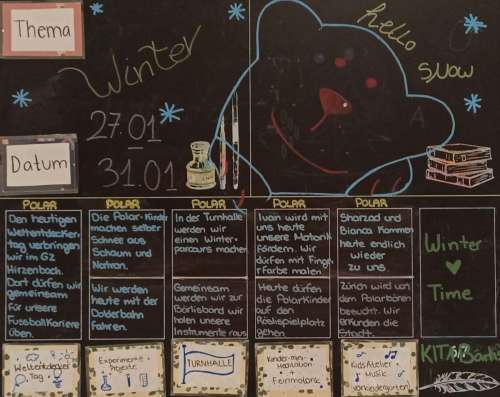 Thema
Winter
hello
snow
27.01
31.01
Datum
POLAR
Den heutigen
Weltentdecker-
tag verbringen
wir im GZ
Hirzenbach.
Dort dürfen wir
gemeinsam
für unsere
Fussballkariere
üben.
POLAR
Die Polar-Kinder
machen selber
Schnee aus
Schaum und
Natron.
Wir werden
heute mit der
Dolderbahn
fahren.
POLAR
In der Turnhalle
werden wir
einen Winter-
parcours machen
Gemeinsam
werden wir zur
Bärlisbord wir
holen unsere
Instrumente raus
POLAR
Ivain wird mit
uns heute
unsere Motorik
fördern. Wir
dürfen mit Finger
Farbe malen
Heute dürfen
die Polarkinder
auf den
Röslispielplatz
gehen
POLAR
Sharzad und
Bianca kommen
heute endlich
wieder
zu uns.
Zürich wird von
den Polarbären
besucht. Wir
erkunden die
Stadt.
Winter
Time
Weltentdecker
Tag
Experimente
Projekte
TURNHALLE
Kinder-mini-
Meditation
+
Feinmotorik
KidsAtelier
Musik
Vorkindergarten
KITA